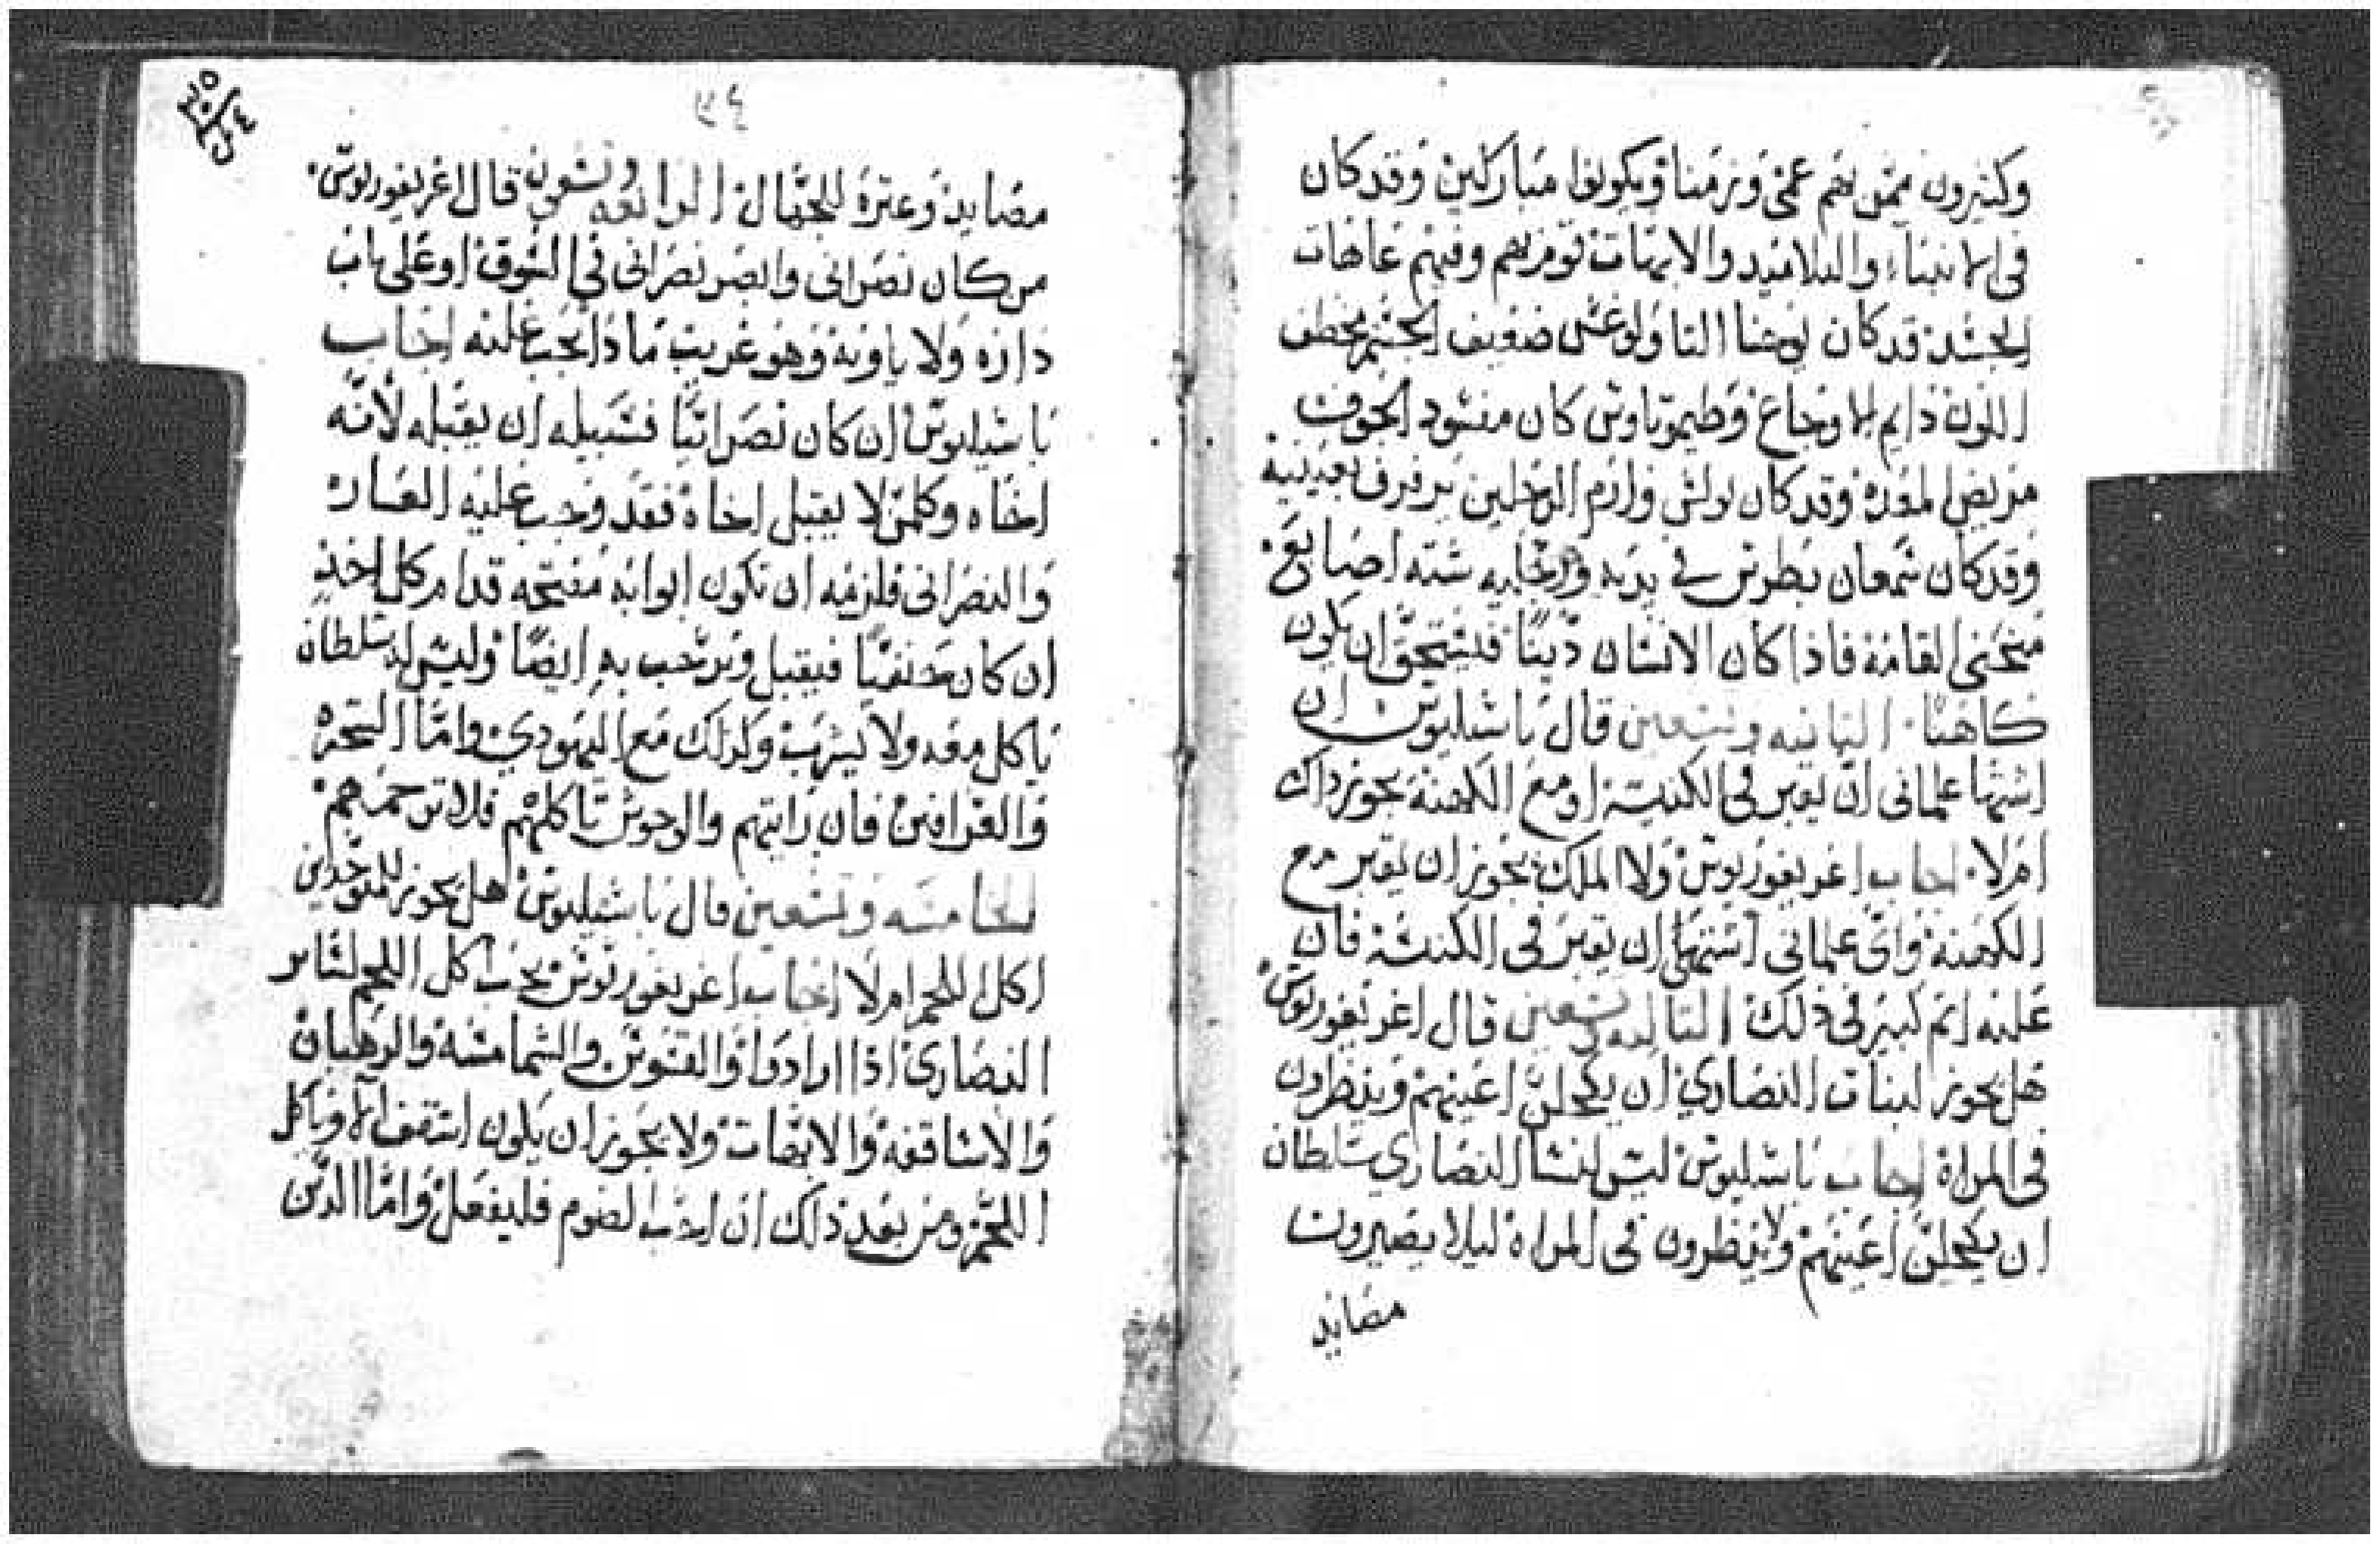 وكثيرون ممن هم عمى وزمنا ويكونوا مباركين وقد كان
فى الانبياء والتلاميد والابهات توفريهم وفيهم عاهات
الجسد قد كان يوحنا التاولوغس ضعيف الجسم مخطف
اللون دايم الاوجاع وطيموتاوس كان مفسود الجوف
مريض المعده وقد كان بولس وارم الرجلين يرفرف بعينيه
وقد كان شمعان بطرس فى يديه ورجليه سته اصابع
منحنى القامة فاذا كان الانسان دينًا فيستحق ان يكون
كاهنًا. الثانيه وتسعين قال باسليوس ان
اشتها علمانى ان يقبر فى الكنيسة او مع الكهنة يجوز داك
ام لا. اجاب اغريغوريوس ولا الملك يجوز ان يقبر مع
الكهنة واى علمانى اشتهى ان يقبر فى الكنيسة فان
عليه اتم كبير فى ذلك التالته وتسعين قال اغريغوريوس
هل يجوز لبنات النصارى ان يكحلن اعينهم وينظرون
فى المراة اجاب باسليوس ليس لنسا النصارى سلطان
ان يكحلن اعينهم ولا ينظرون فى المراه ليلا يصيرون
مصايد
٣٤
مصايد وعترة للجهال الرابعه وتسعون قال اغريغوريوس.
من كان نصرانى وابصر نصرانى فى السوق او على باب
داره ولا ياويه وهو غريب ما دا يجب عليه اجاب
باسيليوس ان كان نصرانيًا فسبيله ان يقبله لانه
اخاه وكلمن لا يقبل اخاه فقد وجب عليه العار
والنصرانى فلزمه ان تكون ابوابه مفتحه قدام كل احد
ان كان حنفيًا فيقبل ويرحب به ايضًا وليس له سلطان
ياكل معه ولا يشرب وكداك مع اليهودي واما السحره
والعرافين فان رايتهم والوحوش تاكلهم فلا ترحمهم
الخامسه وتسعين قال باسيليوس هل يجوز للموحدين
اكل اللحم ام لا اجاب اغريغوريوس يجب اكل اللحم لساير
النصارى اذا ارادوا والقسوس والشمامسه والرهبان
والاساقفه والابهات ولا يجوز ان يكون اسقف الا وياكل
اللحم ومن بعد ذلك ان احب الصوم فليفعل واما الدين